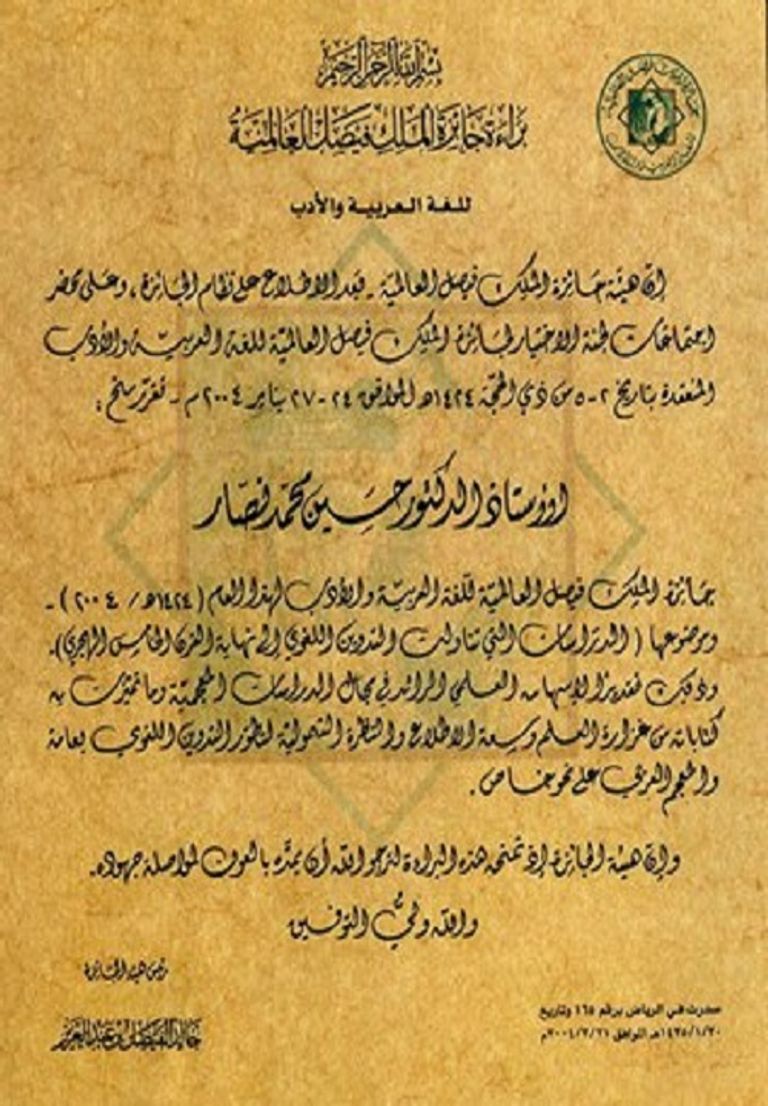 بسم الله الرحمن الرحيم
براءة جائزة الملك فيصل العالمية
للغة العربية والأدب
إن هيئة جائزة الملك فيصل العالمية - بعد الاطلاع على نظام الجائزة، وعلى محضر
اجتماعات لجنة الاختيار لجائزة الملك فيصل العالمية للغة العربية والأدب
المنعقدة بتاريخ ٢-٥ من ذي الحجة ١٤٢٤هـ الموافق ٢٤-٢٧ يناير ٢٠٠٤م - تقرر منح :
الأستاذ الدكتور حسين محمد نصار
جائزة الملك فيصل العالمية للغة العربية والأدب لهذا العام (١٤٢٤هـ/٢٠٠٤) -
وموضوعها (الدراسات التي تناولت التدوين اللغوي إلى نهاية القرن الخامس الهجري).
وذلك تقديرًا لإسهامه العلمي الرائد في مجال الدراسات المعجمية وما تميزت به
كتاباته من غزارة العلم وسعة الاطلاع والنظرة الشمولية لتطور التدوين اللغوي بعامة
والمعجم العربي على نحو خاص .
وإن هيئة الجائزة إذ تمنحه هذه البراءة لترجو الله أن يمدّه بالعون لمواصلة جهوده.
والله ولي التوفيق
رئيس هيئة الجائزة
خالد الفيصل بن عبد العزيز
صدرت في الرياض برقم ١٦٥ وتاريخ
١٤٢٥/١/٣٠هـ الموافق ٢٠٠٤/٣/٢١م